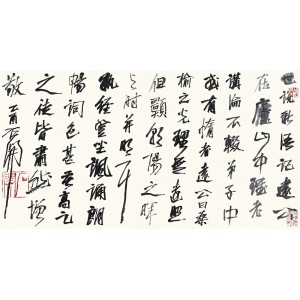 世說新語記
在廬山中雖老
講論不輟弟子中
或有惰者遠公曰桑
榆之光理無遠照
但願朝陽之暉
与时並明耳
執經登坐諷誦朗
暢詞色甚苦高足
之徒皆肅然增
敬 丁酉石開